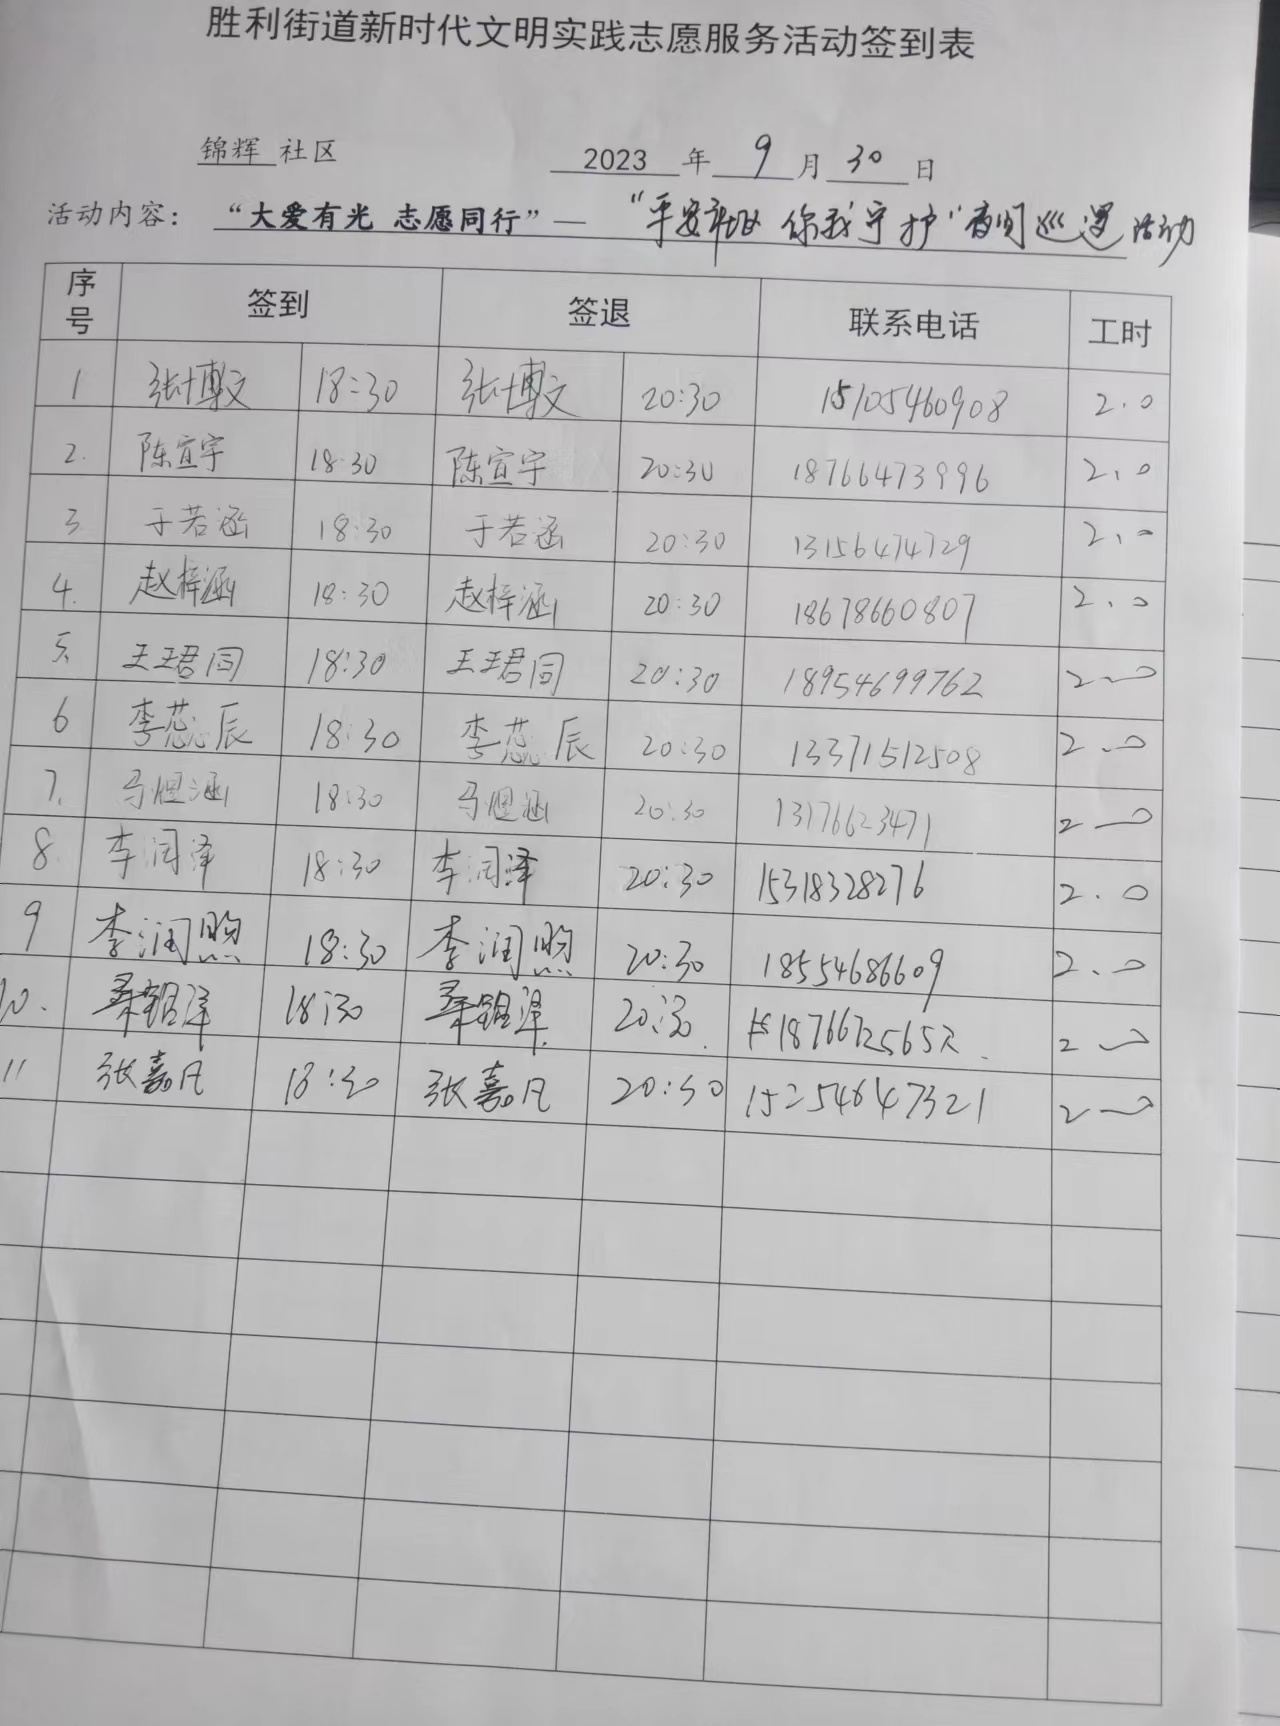 胜利街道新时代文明实践志愿服务活动签到表
锦辉 社区 2023 年 9 月 30 日
活动内容：“大爱有光 志愿同行”—“平安 你我守护”夜间巡逻活动
序号 签到 签退 联系电话 工时
1 张博文 18:30 张博文 20:30 15105460908 2.0
2. 陈宣宇 18:30 陈宣宇 20:30 18766473996 2.0
3 于若涵 18:30 于若涵 20:30 13156474729 2.0
4. 赵梓涵 18:30 赵梓涵 20:30 18678660807 2.0
5. 王珺同 18:30 王珺同 20:30 18954699762 2.0
6 李蕊辰 18:30 李蕊辰 20:30 13371512508 2.0
7. 马煜涵 18:30 马煜涵 20:30 13176623471 2.0
8. 李润泽 18:30 李润泽 20:30 15318328276 2.0
9 李润煦 18:30 李润煦 20:30 18554686609 2.0
10. 泽 18:30 泽 20:30. 2.0
11 张嘉凡 18:30 张嘉凡 20:30 15254647321 2.0